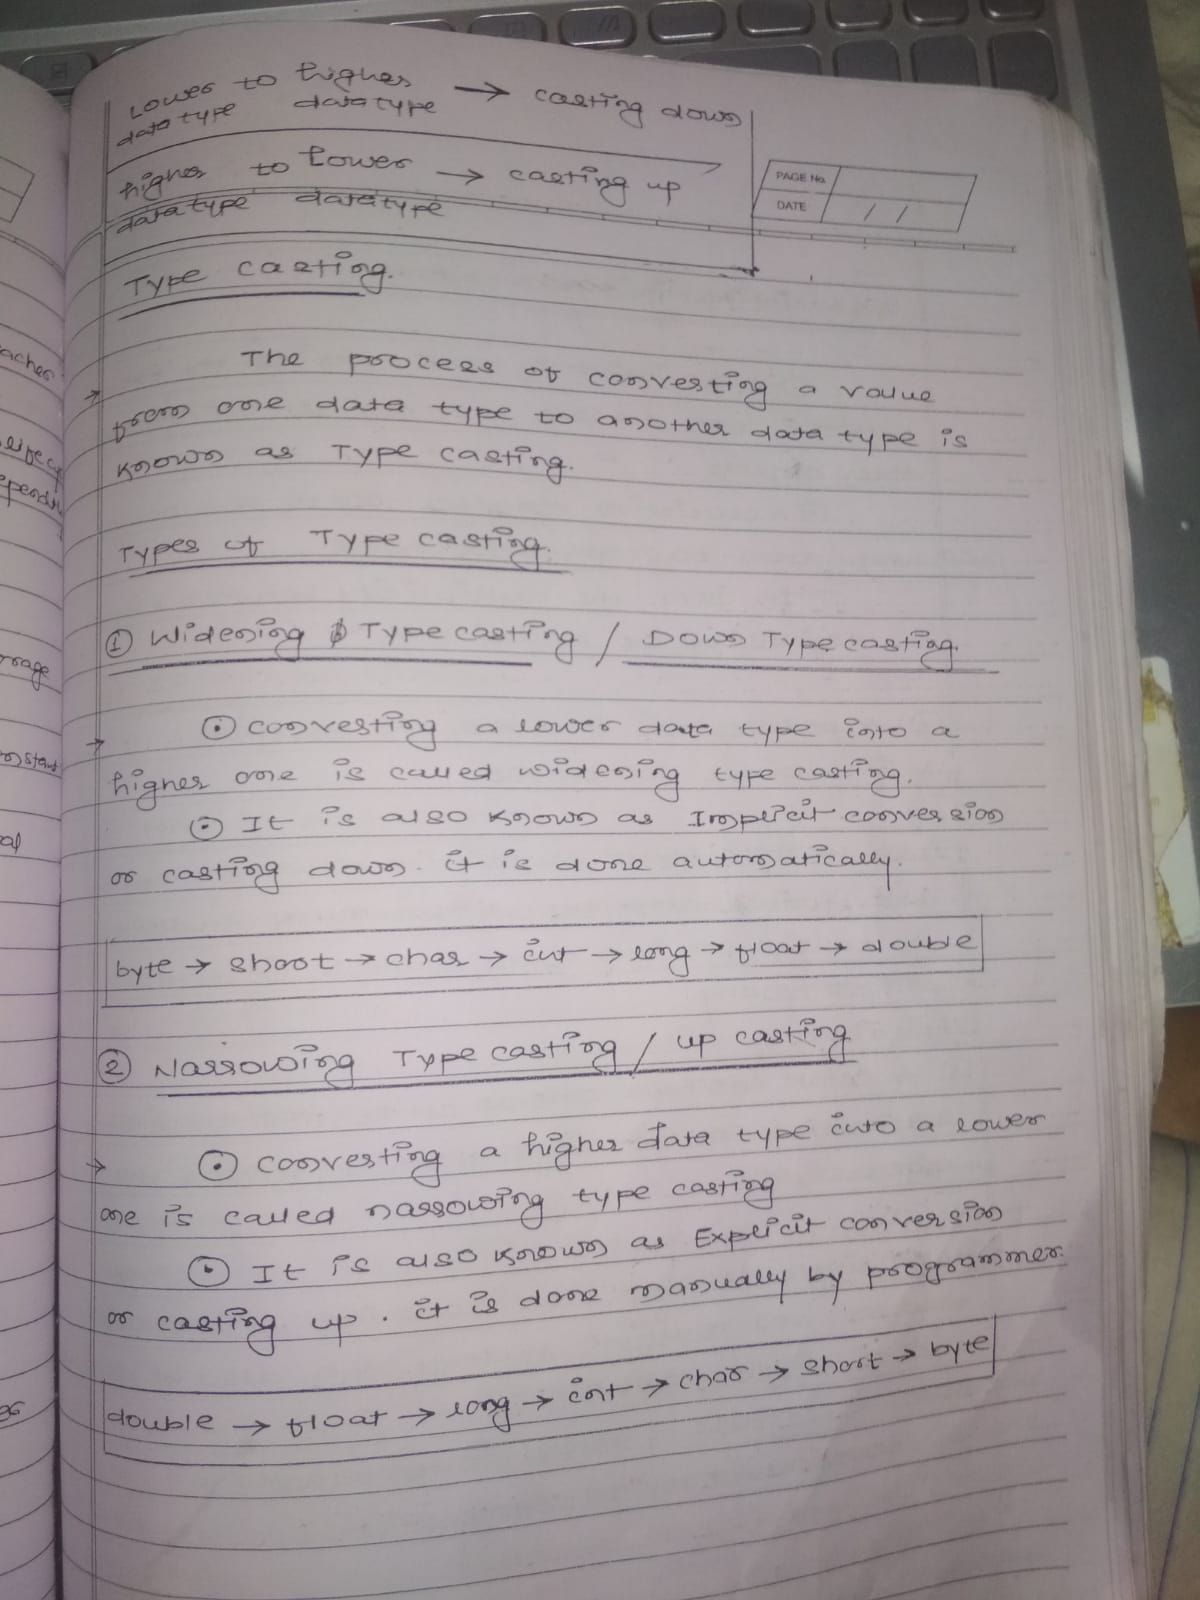 Lower to higher → casting down
data type data type
higher to lower → casting up
data type datatype
PAGE No.
DATE / /
Type casting.
The process of converting a value
from one data type to another data type is
known as Type casting.
Types of Type casting.
① Widening Type casting / Down Type casting.
⊙ converting a lower data type into a
higher one is called widening type casting.
⊙ It is also known as Implicit conversion
or casting down. it is done automatically.
byte → short → char → int → long → float → double
② Narrowing Type casting / up casting
⊙ converting a higher data type into a lower
one is called narrowing type casting
⊙ It is also known as Explicit conversion
or casting up. it is done manually by programmer.
double → float → long → int → char → short → byte